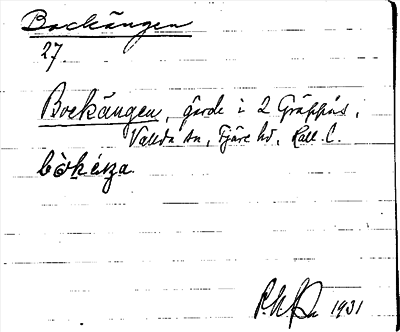 Bockängen
27
Bockängen, gärde i 2 Gräppås,
Vallda sn, Fjäre hd, Hall. C.
1931